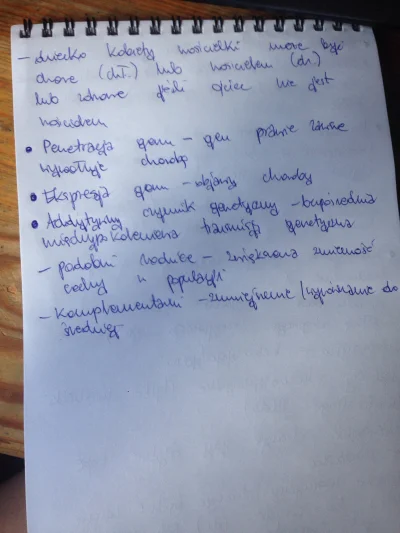 - dziecko kobiety nosicielki może być
chore (chł.) lub nosicielem (dz.)
lub zdrowe jeśli ojciec nie jest
nosicielem
• Penetracja genu - gen prawie zawsze
wywołuje chorobę
• Ekspresja genu - objawy choroby
• Addytywny czynnik genetyczny - bezpośrednia
międzypokoleniowa transmisja genetyczna
- podobni rodzice - zwiększona zmienność
cechy w populacji
- Komplementarni - zmniejszenie / wyrównanie do
średniej